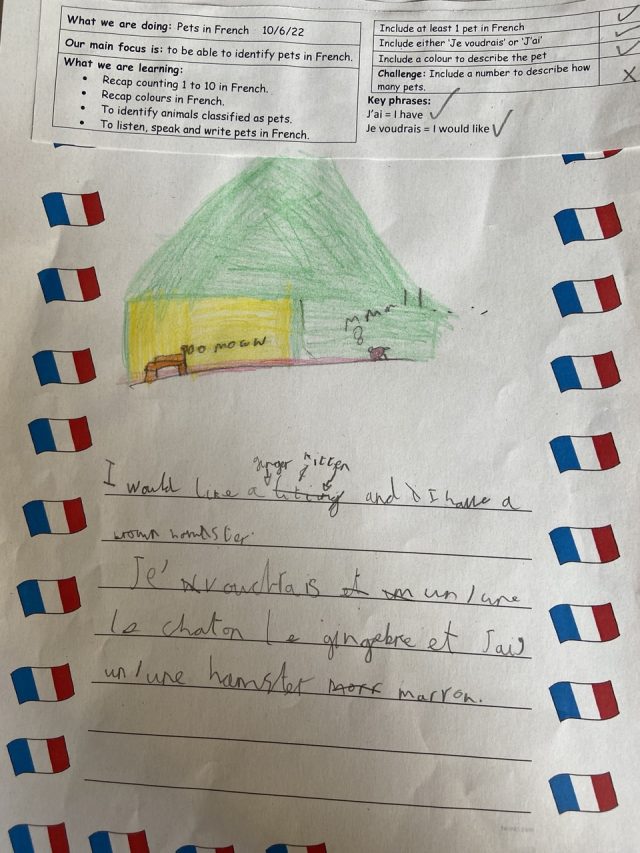 What we are doing: Pets in French 10/6/22
Our main focus is: to be able to identify pets in French.
What we are learning:
• Recap counting 1 to 10 in French.
• Recap colours in French.
• To identify animals classified as pets.
• To listen, speak and write pets in French.
Include at least 1 pet in French
Include either 'Je voudrais' or 'J'ai'
Include a colour to describe the pet
Challenge: Include a number to describe how
many pets.
Key phrases:
J'ai = I have
Je voudrais = I would like
moww
ginger kitten
I would like a and I have a
hamster.
Je' vouldrais et un/une
le chaton le gingebre et J'ai
un/une hamster marron.